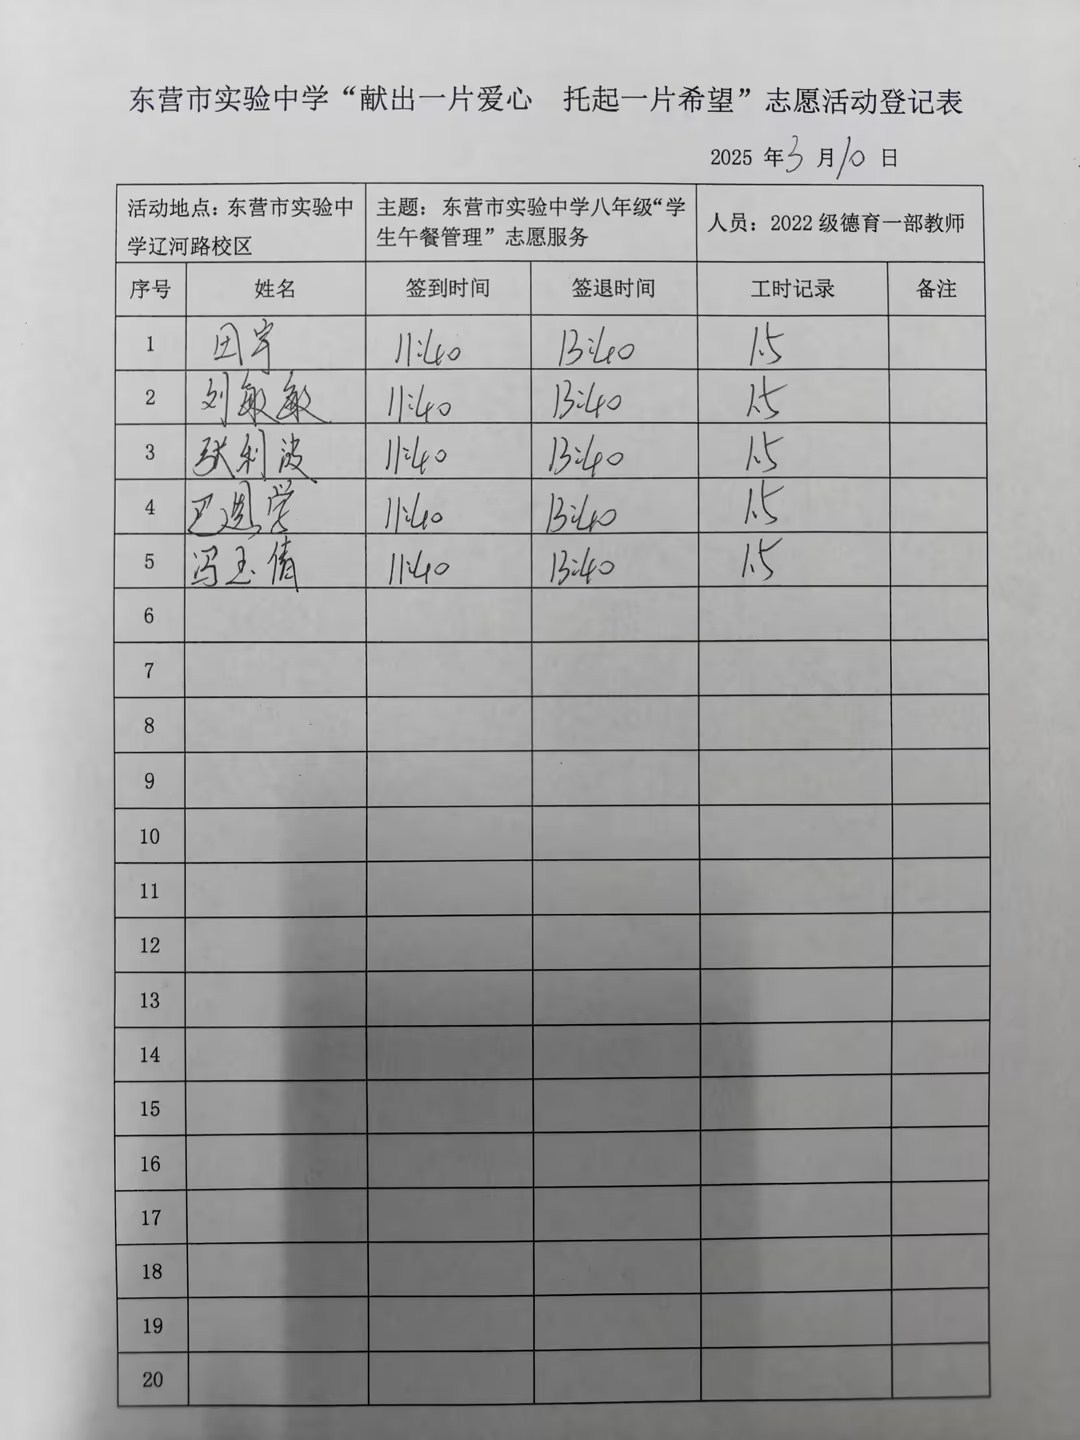 东营市实验中学“献出一片爱心 托起一片希望”志愿活动登记表
2025 年 3 月 10 日
活动地点：东营市实验中学辽河路校区 主题：东营市实验中学八年级“学生午餐管理”志愿服务 人员：2022 级德育一部教师
序号 姓名 签到时间 签退时间 工时记录 备注
1 田宇 11:40 13:40 1.5
2 刘敏敏 11:40 13:40 1.5
3 张利波 11:40 13:40 1.5
4 巴学 11:40 13:40 1.5
5 冯玉倩 11:40 13:40 1.5
6
7
8
9
10
11
12
13
14
15
16
17
18
19
20